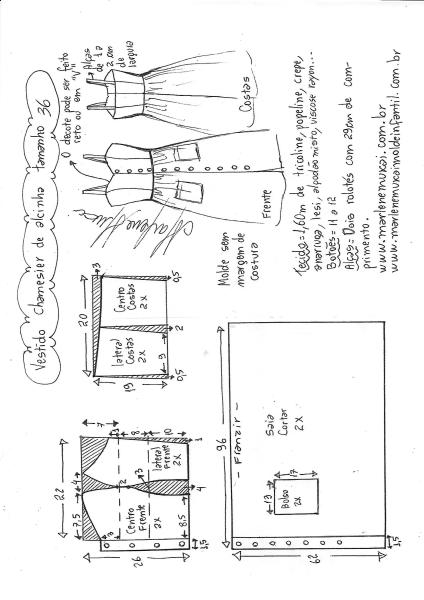 Vestido Chamesier de alcinha tamanho 36
O decote pode ser feito
reto ou em "V"
Alças
de 1 a
2 cm
de
largura
Costas
Frente
Molde sem
margem de
costura
Tecido = 1,60m de tricoline, popeline, crepe,
anarruga, lesi, algodão misto, viscose rayon...
Botões = 11 a 12
Alças = Dois rolotês com 29cm de com-
primento.
www.marlenemukai.com.br
www.marlenemukaimoldeinfantil.com.br
20
3
Centro
Costas
2x
lateral
Costas
2x
19
9
0,5
2
0,5
22
7
7,5
3
8
10
1
lateral
Frente
2x
Centro
Frente
2x
3
2
3
4
4
8,5
26
1,5
96
- Franzir -
Saia
Cortar
2X
17
13
Bolso
2x
62
1,5